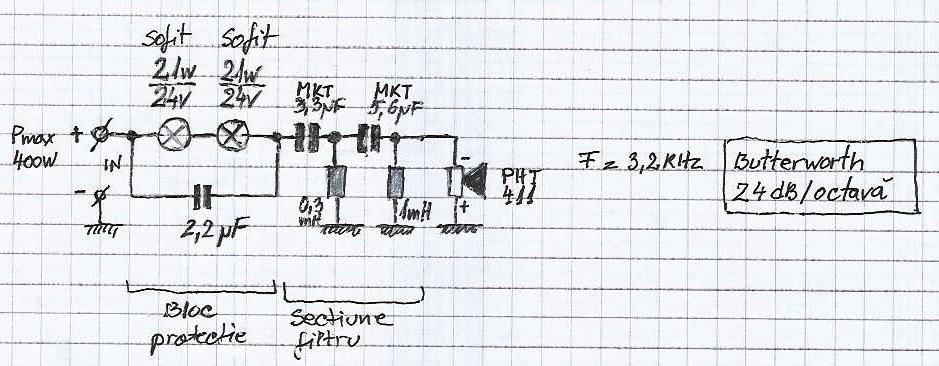 Sofit Sofit
21W 21W
24V 24V
MKT MKT
3,3µF 5,6µF
Pmax +
400W IN
-
2,2µF
0,3
mH
1mH
-
PHT
411
+
F = 3,2 KHz
Butterworth
24 dB/octavă
Bloc
protectie
Sectiune
filtru